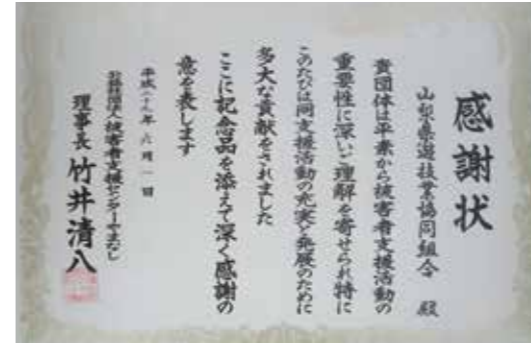 感謝状
山梨県遊技業協同組合 殿
貴団体は平素から被害者支援活動の
重要性に深いご理解を寄せられ特に
このたびは同支援活動の充実と発展のために
多大な貢献をされました
ここに記念品を添えて深く感謝の
意を表します
平成二十八年六月一日
公益社団法人被害者支援センターやまなし
理事長 竹井清八